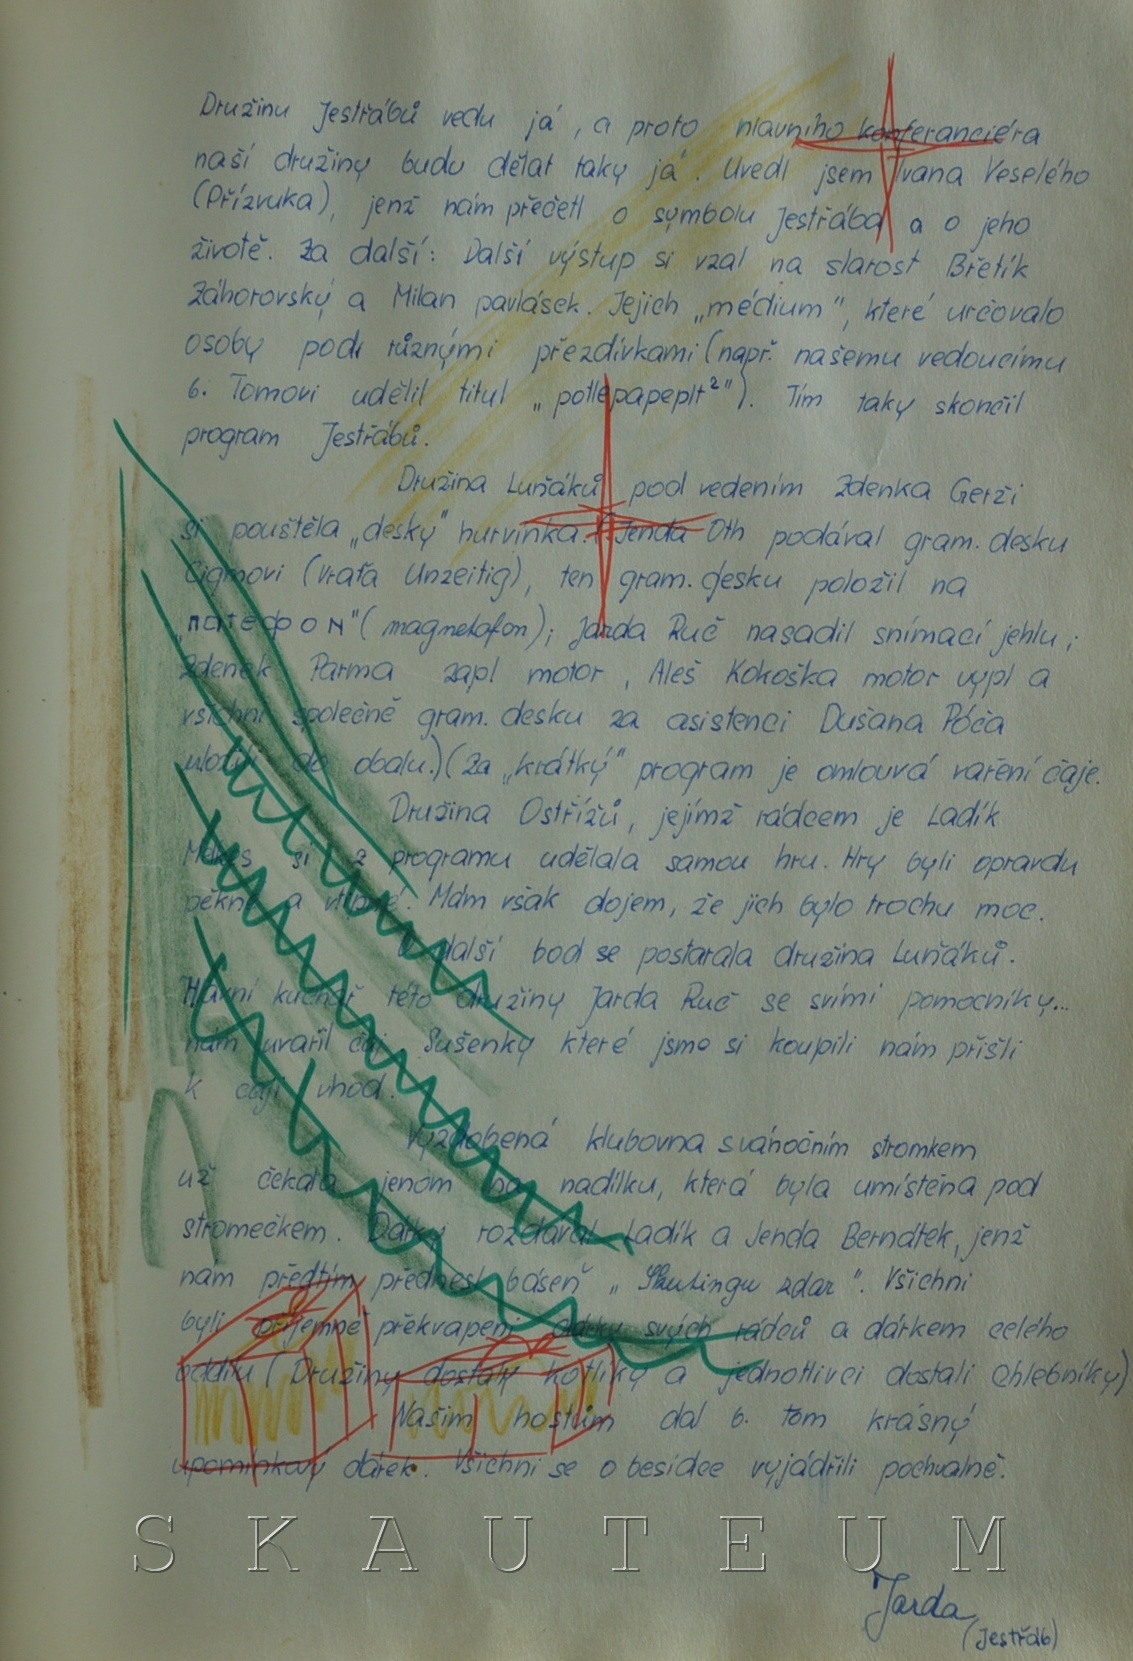 Družinu Jestřábů vedu já, a proto hlavního konferanciéra
naší družiny budu dělat taky já. Uvedl jsem Ivana Veselého
(Přízvuka), jenž nám přečetl o symbolu Jestřába a o jeho
životě. Za další: Další výstup si vzal na starost Břetík
Záhorovský a Milan pavlásek. Jejich „médium", které určovalo
osoby pod různými přezdívkami (např. našemu vedoucímu
b. Tomovi udělil titul „potlepapeplt²"). Tím taky skončil
program Jestřábů.
Družina Luňáků pod vedením Zdenka Gerži
si pouštěla „desky" hurvínka. (Jenda Oth podával gram. desku
Cigmovi (Vraťa Unzeitig), ten gram. desku položil na
„патефон" (magnetofon); Jarda Ruč nasadil snímací jehlu;
Zdenek Parma zapl motor, Aleš Kokoška motor vypl a
všichni společně gram. desku za asistenci Dušana Póča
uložili do obalu.) (Za „krátký" program je omlouvá vaření čaje.
Družina Ostřížů, jejímž rádcem je Ladík
si z programu udělala samou hru. Hry byli opravdu
pěkné a vtipné. Mám však dojem, že jich bylo trochu moc.
O další bod se postarala družina Luňáků.
Hlavní kuchař této družiny Jarda Ruč se svími pomocníky...
nám uvařil čaj. Sušenky které jsme si koupili nám přišli
k čaji vhod.
Vyzdobená klubovna svánočním stromkem
už čekala jenom na nadílku, která byla umístěna pod
stromečkem. Dárky rozdával Ladík a Jenda Berndtek, jenž
nám předtím přednesl báseň „Skutingu zdar". Všichni
byli příjemně překvapeni dárky svých rádců a dárkem celého
oddílu (Družiny dostaly kotlíky a jednotlivci dostali Chlebníky)
Našim hostům dal b. Tom krásný
upomínkový dárek. Všichni se o besídce vyjádřili pochvalně.
SKAUTEUM
Jarda
(Jestřáb)